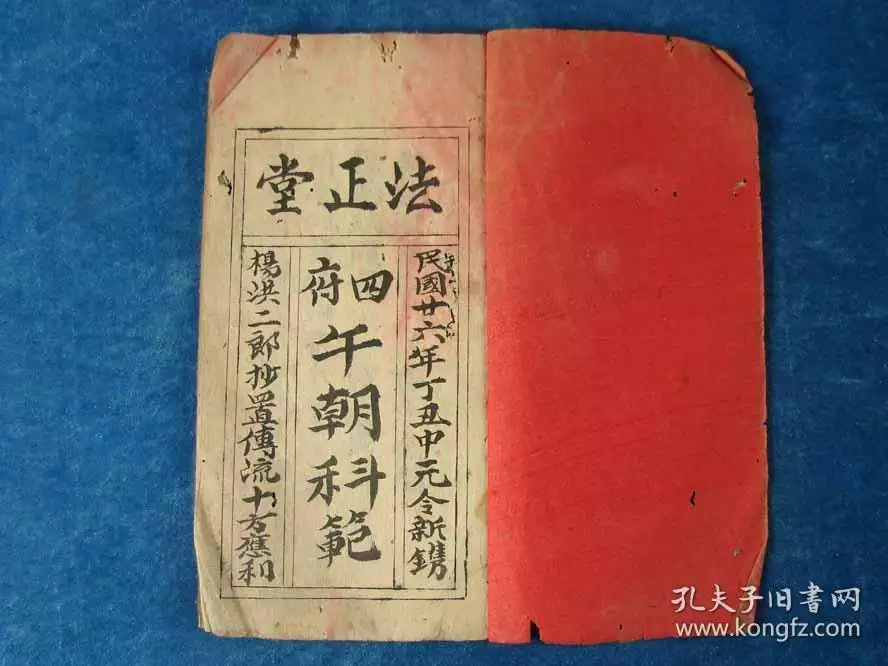 法正堂
民國廿六年丁丑中元令新鐫
四府
午朝科範
楊洪二郎抄置傳流十方應利
孔夫子旧書网
www.kongfz.com